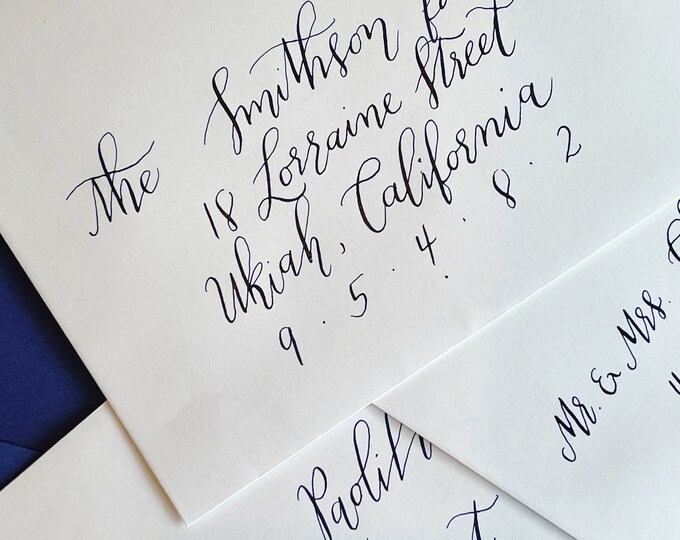 The Smithson
18 Lorraine Street
Ukiah, California
9 · 5 · 4 · 8 · 2
Mr. & Mrs.